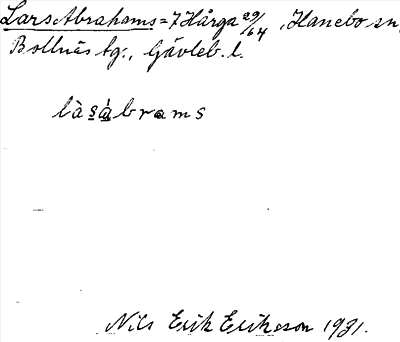 Lars Abrahams = 7 Hårga 29/64, Hanebo sn,
Bollnäs tg., Gävleb. l.
làsábrams
Nils Erik Erikson 1931.